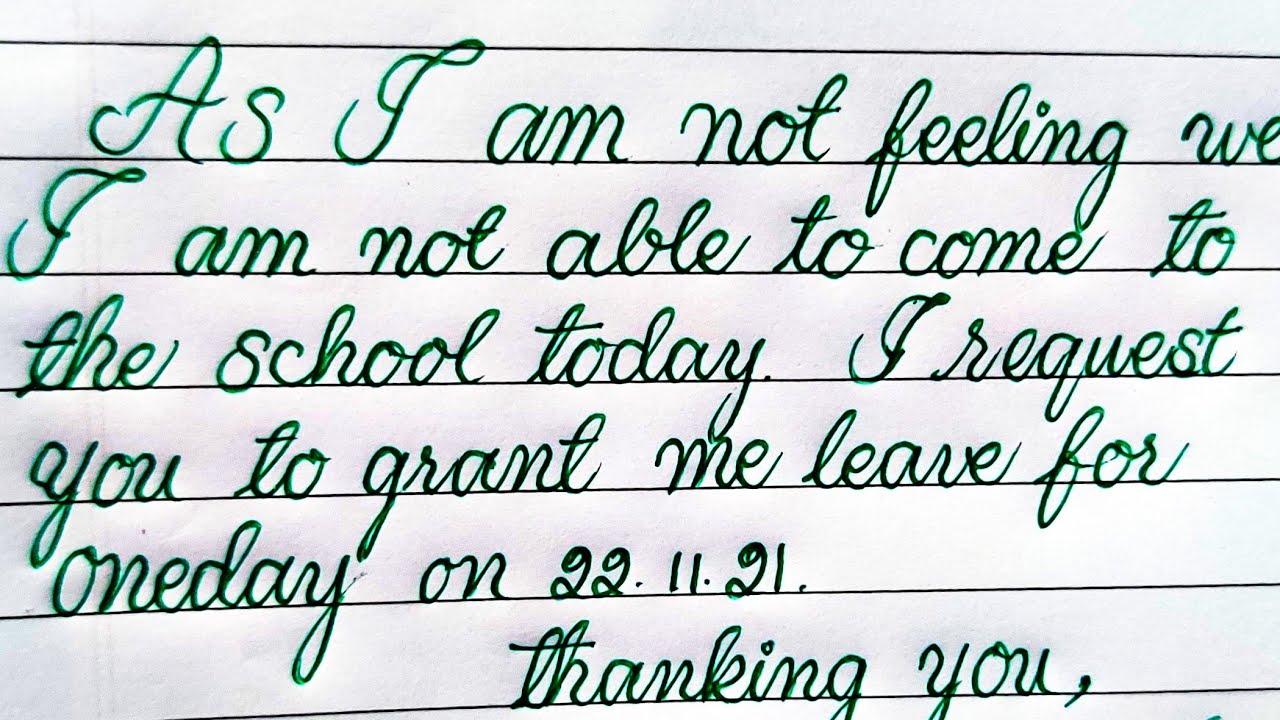 As I am not feeling we
I am not able to come to
the school today. I request
you to grant me leave for
oneday on 22.11.21.
thanking you,